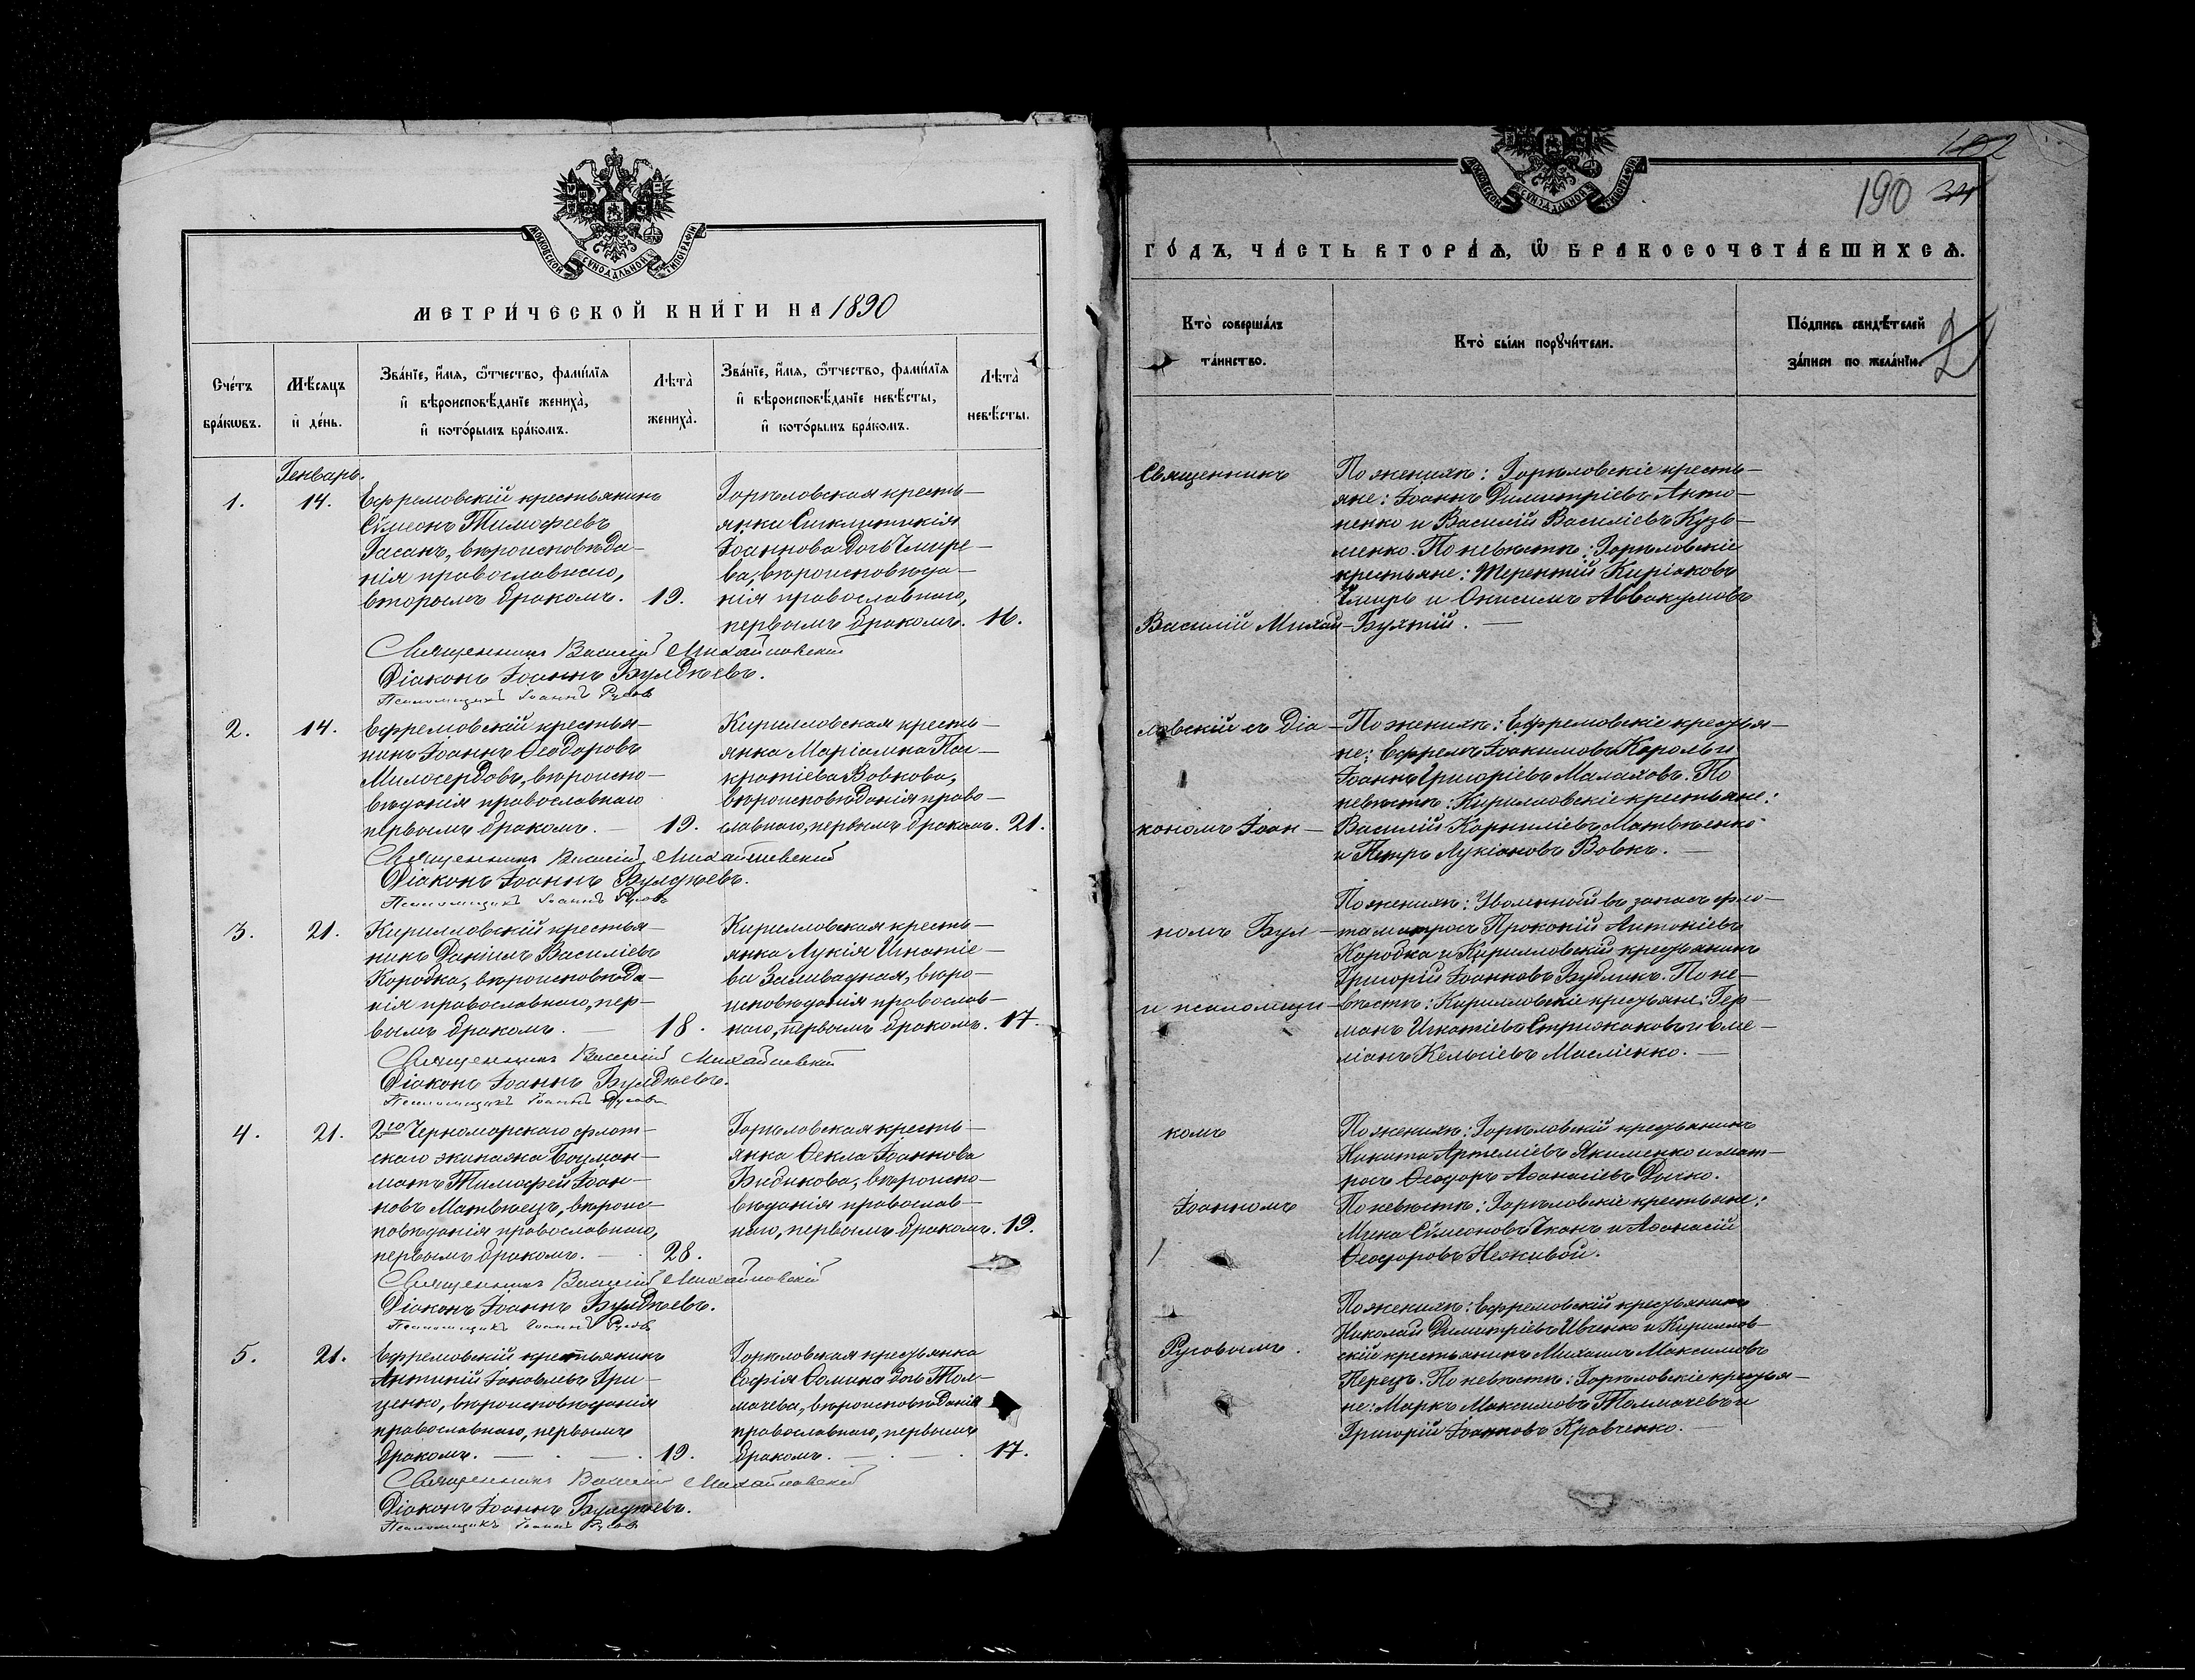 МОСКОВСКОЙ СѴНОДАЛЬНОЙ ТИПОГРАФІИ
МЕТРИ́ЧЕСКОЙ КНИ́ГИ НА 1890
Сче́тъ
бра́кѡвъ.
Мѣ́сяцъ
и҆ де́нь.
Зва́нїе, и҆́мѧ, ѻ҆́тчество, фами́лїѧ
и҆ вѣроисповѣ́данїе жениха̀,
и҆ кото́рымъ бра́комъ.
Лѣта̀
жениха̀.
Зва́нїе, и҆́мѧ, ѻ҆́тчество, фами́лїѧ
и҆ вѣроисповѣ́данїе невѣ́сты,
и҆ кото́рымъ бра́комъ.
Лѣта̀
невѣ́сты.
Генварь.
1.
14.
Ефремовскій крестьянинъ
Сѵмеонъ Тимофеевъ
Гасанъ, вѣроисповѣда–
нія православнаго,
вторымъ бракомъ. 19.
Горѣловская кресть–
янка Синклитикія
Іоаннова Дочь Чмире–
ва, вѣроисповѣда–
нія православнаго,
первымъ бракомъ. 16.
Священникъ Василій Михайловскій
Діаконъ Іоаннъ Булднѣевъ.
Псаломщикъ Іоаннъ Русовъ
2.
14.
Ефремовскій крестья–
нинъ Іоаннъ Ѳеодоровъ
Милосердовъ, вѣроиспо–
вѣданія православнаго
первымъ бракомъ. — 19.
Кирилловская кресть–
янка Маріамна Пан–
кратіева Вовкова,
вѣроисповѣданія право–
славнаго, первымъ бракомъ. 21.
Священникъ Василій Михайловскій
Діаконъ Іоаннъ Булднѣевъ.
Псаломщикъ Іоаннъ Русовъ
3.
21.
Кирилловскій крестья–
нинъ Даніилъ Василіевъ
Коробка, вѣроисповѣда–
нія православнаго, пер–
вымъ бракомъ. — 18.
Кирилловская кресть–
янка Лукія Игнатіе–
ва Заливадная, вѣро–
исповѣданія православ–
наго, первымъ бракомъ. 17.
Священникъ Василій Михайловскій
Діаконъ Іоаннъ Булднѣевъ.
Псаломщикъ Іоаннъ Русовъ
4.
21.
2го Черноморскаго флот–
скаго экипажа Боцман–
матъ Тимофей Іоан–
новъ Матвѣецъ, вѣроис–
повѣданія православнаго,
первымъ бракомъ. — 28.
Горѣловская кресть–
янка Ѳекла Іоаннова
Бидикова, вѣроиспо–
вѣданія православ–
наго, первымъ бракомъ. 19.
Священникъ Василій Михайловскій
Діаконъ Іоаннъ Булднѣевъ.
Псаломщикъ Іоаннъ Русовъ
5.
21.
Ефремовскій крестьянинъ
Антоній Іаковлевъ Гри–
ценко, вѣроисповѣданія
православнаго, первымъ
бракомъ. — 19.
Горѣловская крестьянка
Софія Ѳомина Дочь Тол–
мачева, вѣроисповѣданія
православнаго, первымъ
бракомъ. — 17.
Священникъ Василій Михайловскій
Діаконъ Іоаннъ Булднѣевъ.
Псаломщикъ Іоаннъ Русовъ
МОСКОВСКОЙ СѴНОДАЛЬНОЙ ТИПОГРАФІИ
190
ГО́ДЪ, ЧА́СТЬ ВТОРА́Ѧ, Ѡ҆ БРАКОСОЧЕТА́ВШИХСѦ.
Кто̀ соверша́лъ
та́инство.
Кто̀ бы́ли порꙋчи́тели.
По́дпись свидѣ́телей
за́писи по жела́нїю.
2
Священникъ
Василій Михай–
ловскій съ Діа–
кономъ Іоан–
номъ Бул–
и псаломщи–
комъ
Іоанномъ
Русовымъ.
По женихѣ: Горѣловскіе кресть–
яне: Іоаннъ Димитріевъ Анто–
ненко и Василій Василіевъ Кузь–
менко. По невѣстѣ: Горѣловскіе
крестьяне: Терентій Киріаковъ
Чмирь и Онисимъ Аввакумовъ
Бухтій. —
По женихѣ: Ефремовскіе крестья–
не: Ефремъ Іоакимовъ Король и
Іоаннъ Григоріевъ Малаховъ. По
невѣстѣ: Кирилловскіе крестьяне:
Василій Корниліевъ Матвѣенко
и Петръ Лукіановъ Вовкъ. —
По женихѣ: Уволенный въ запасъ фло–
та матросъ Прокопій Антоніевъ
Коробка и Кирилловскій крестьянинъ
Григорій Іоанновъ Будникъ. По не–
вѣстѣ: Кирилловскіе крестьяне: Гер–
манъ Игнатіевъ Стрижаковъ и Еме–
ліанъ Кельсіевъ Масліенко. —
По женихѣ: Горѣловскій крестьянинъ
Никита Артеміевъ Якименко и мат–
росъ Ѳеодоръ Аѳанасіевъ Дычко.
По невѣстѣ: Горѣловскіе крестьяне:
Мина Сѵмеоновъ Чканъ и Аѳанасій
Ѳеодоровъ Неживой.
По женихѣ: Ефремовскій крестьянинъ
Николай Димитріевъ Ивченко и Кириллов–
скій крестьянинъ Михаилъ Максимовъ
Перецъ. По невѣстѣ: Горѣловскіе крестья–
не: Маркъ Максимовъ Толмачевъ и
Григорій Іоанновъ Кравченко. —